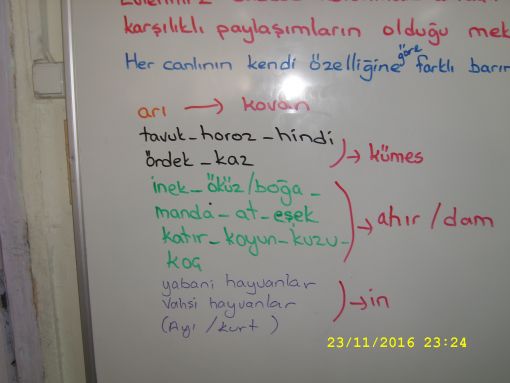 karşılıklı paylaşımların olduğu mek
Her canlının kendi özelliğine göre farklı barın
arı → kovan
tavuk - horoz - hindi
ördek - kaz → kümes
inek - öküz/boğa -
manda - at - eşek → ahır / dam
katır - koyun - kuzu -
koç
yabani hayvanlar
vahşi hayvanlar → in
(Ayı / kurt )
23/11/2016 23:24